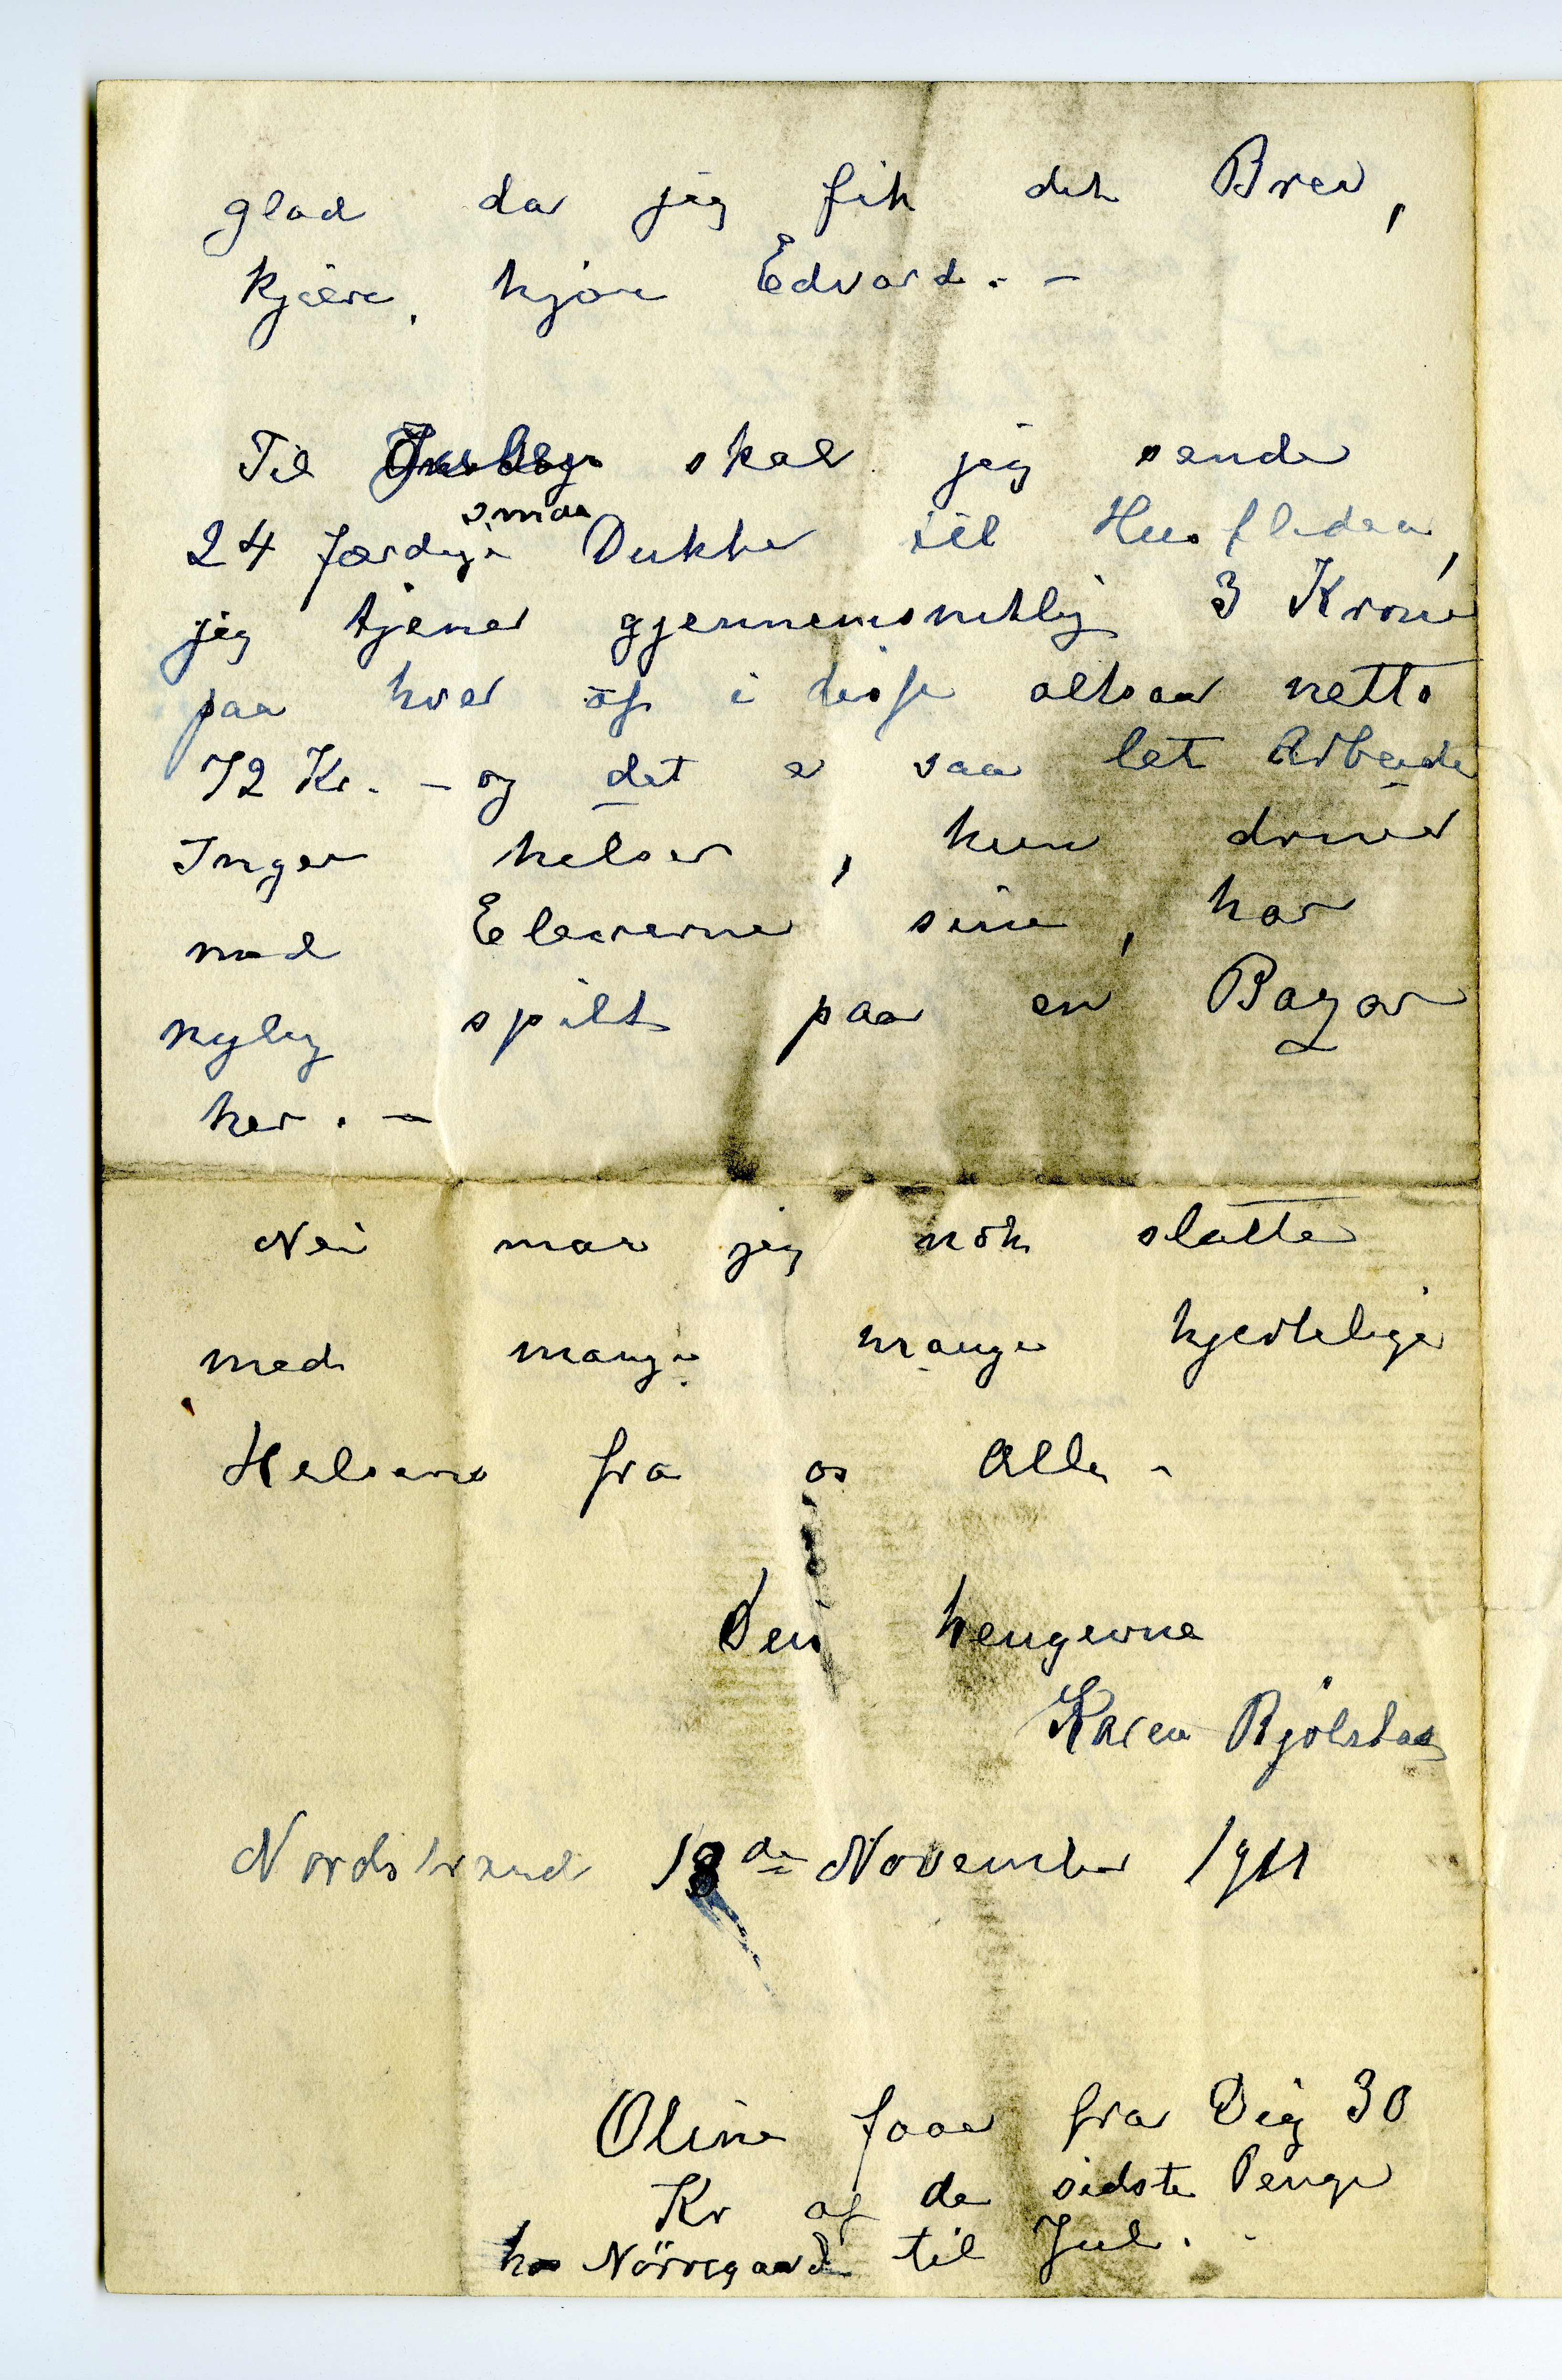 glad da jeg fik det Brev,
kjære, kjære Edvard. –
Til skal jeg sende
smaa
24 færdige Dukker til Husfliden,
jeg tjener gjennemsnitlig 3 Kroner
paa hver af disse altsaa netto
72 Kr. – og det er saa let Arbeide
Inger hilser, hun driver
med Eleverne sine, har
nylig spilt paa en Bazar
her. –
Nei maa jeg nok slutte
med mange mange hjertelige
Hilsener fra os Alle –
Din hengivne
Karen Bjölstad
Nordstrand 18de November 1911
Oline faaer fra Dig 30
Kr af de sidste Penge
hos Nörregaard til Jul. -